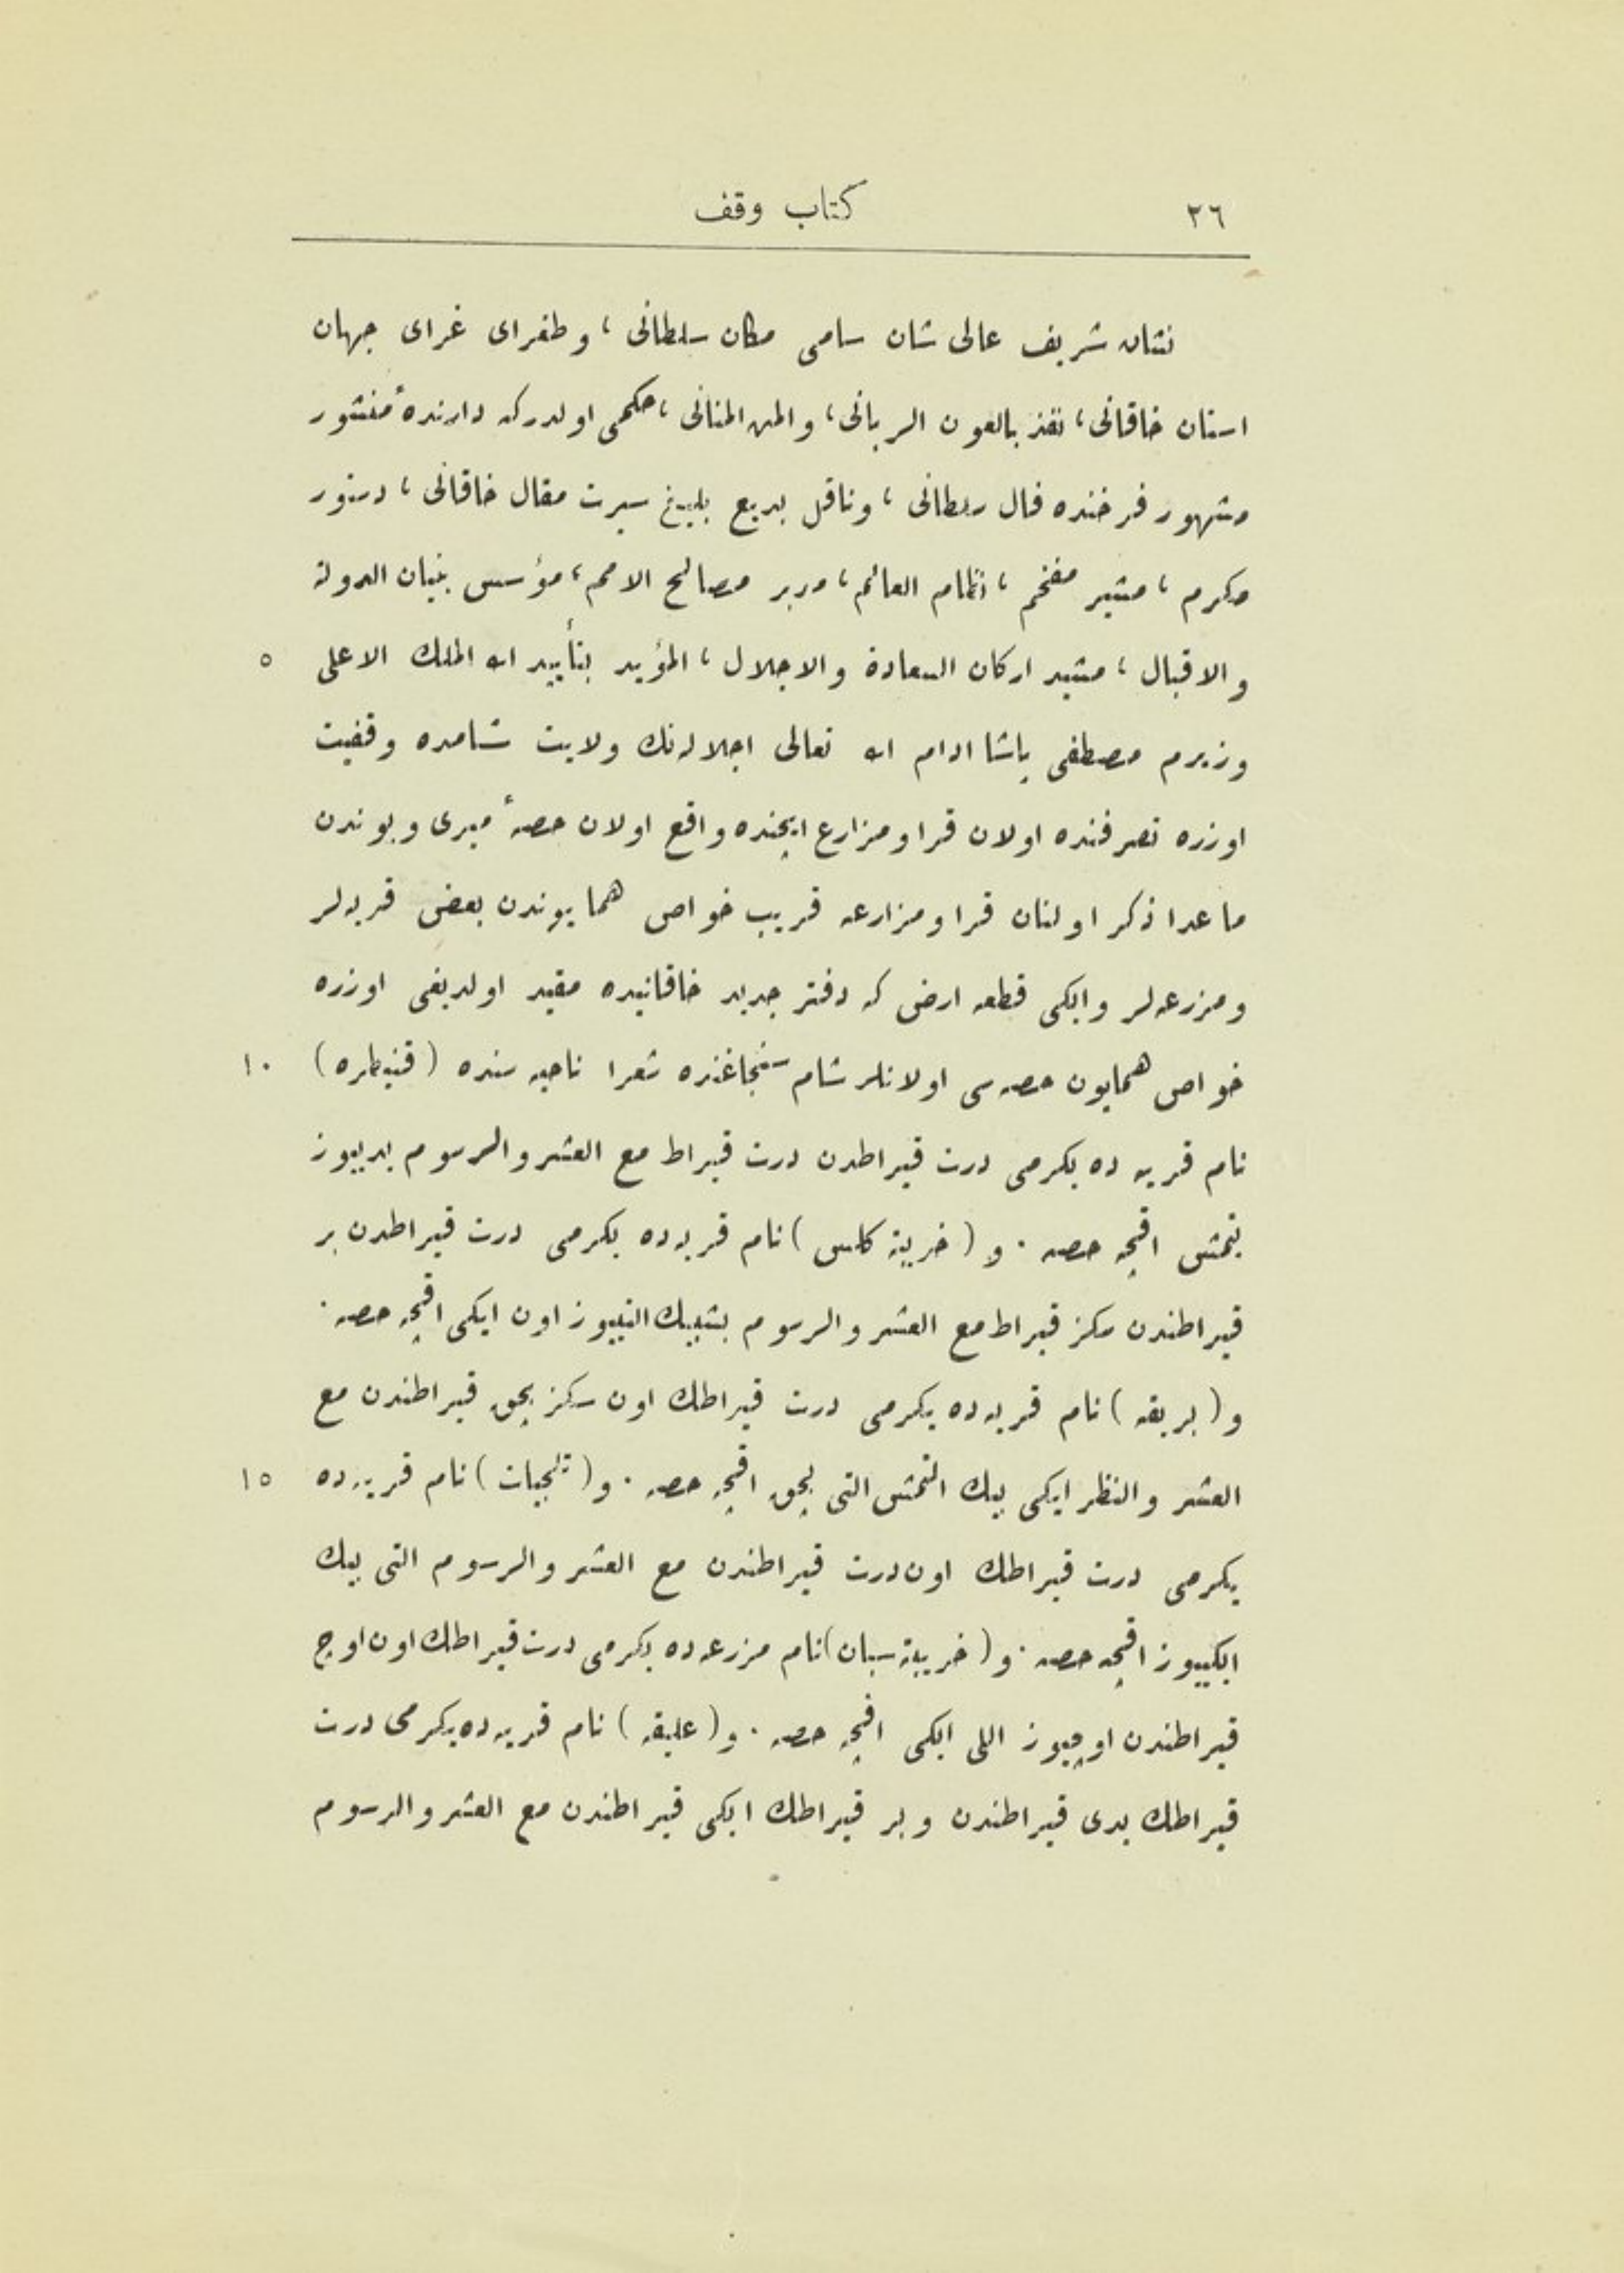 ٢٦ كتاب وقف
نشان شريف عالى شان سامى مكان سلطانى ، و طغراى غراى جهان
استان خاقانى ، نفذ بالعون الربانى ، و المن المنانى ، حكمى اولدر كه دارندهٔ منشور
مشهور فرخنده فال سلطانى ، و ناقل بديع بليغ سيرت مقال خاقانى ، دستور
مكرم ، مشير مفخم ، نظام العالم ، مدبر مصالح الامم ، مؤسس بنيان الدولة
و الاقبال ، مشيد اركان السعادة و الاجلال ، المؤيد بتأييد الله الملك الاعلى ٥
وزيرم مصطفى پاشا ادام الله تعالى اجلاله نك ولايت شامده وقفيت
اوزره تصرفنده اولان قرا و مزارع ايچنده واقع اولان حصهٔ ميرى و بوندن
ما عدا ذكر اولنان قرا و مزارعه قريب خواص همايوندن بعض قريه لر
و مزرعه لر و ايكى قطعه ارض كه دفتر جديد خاقانيده مقيد اولديغى اوزره
خواص همايون حصه سى اولانلر شام سنجاغنده شعرا ناحيه سنده ( قنيطره ) ١٠
نام قريه ده يكرمى درت قيراطدن درت قيراط مع العشر و الرسوم يديوز
يتمش اقچه حصه . و ( خربة كلس ) نام قريه ده يكرمى درت قيراطدن بر
قيراطندن سكز قيراط مع العشر و الرسوم بشبيك التيوز اون ايكى اقچه حصه .
و ( بريقه ) نام قريه ده يكرمى درت قيراطك اون سكز بچق قيراطندن مع
العشر و النظر ايكى بيك التمش التى بچق اقچه حصه . و ( ثلجيات ) نام قريه ده ١٥
يكرمى درت قيراطك اون درت قيراطندن مع العشر و الرسوم التى بيك
ايكييوز اقچه حصه . و ( خربة سبان ) نام مزرعه ده يكرمى درت قيراطك اون اوچ
قيراطندن اوچيوز اللى ايكى اقچه حصه . و ( عليقه ) نام قريه ده يكرمى درت
قيراطك يدى قيراطندن و بر قيراطك ايكى قيراطندن مع العشر و الرسوم